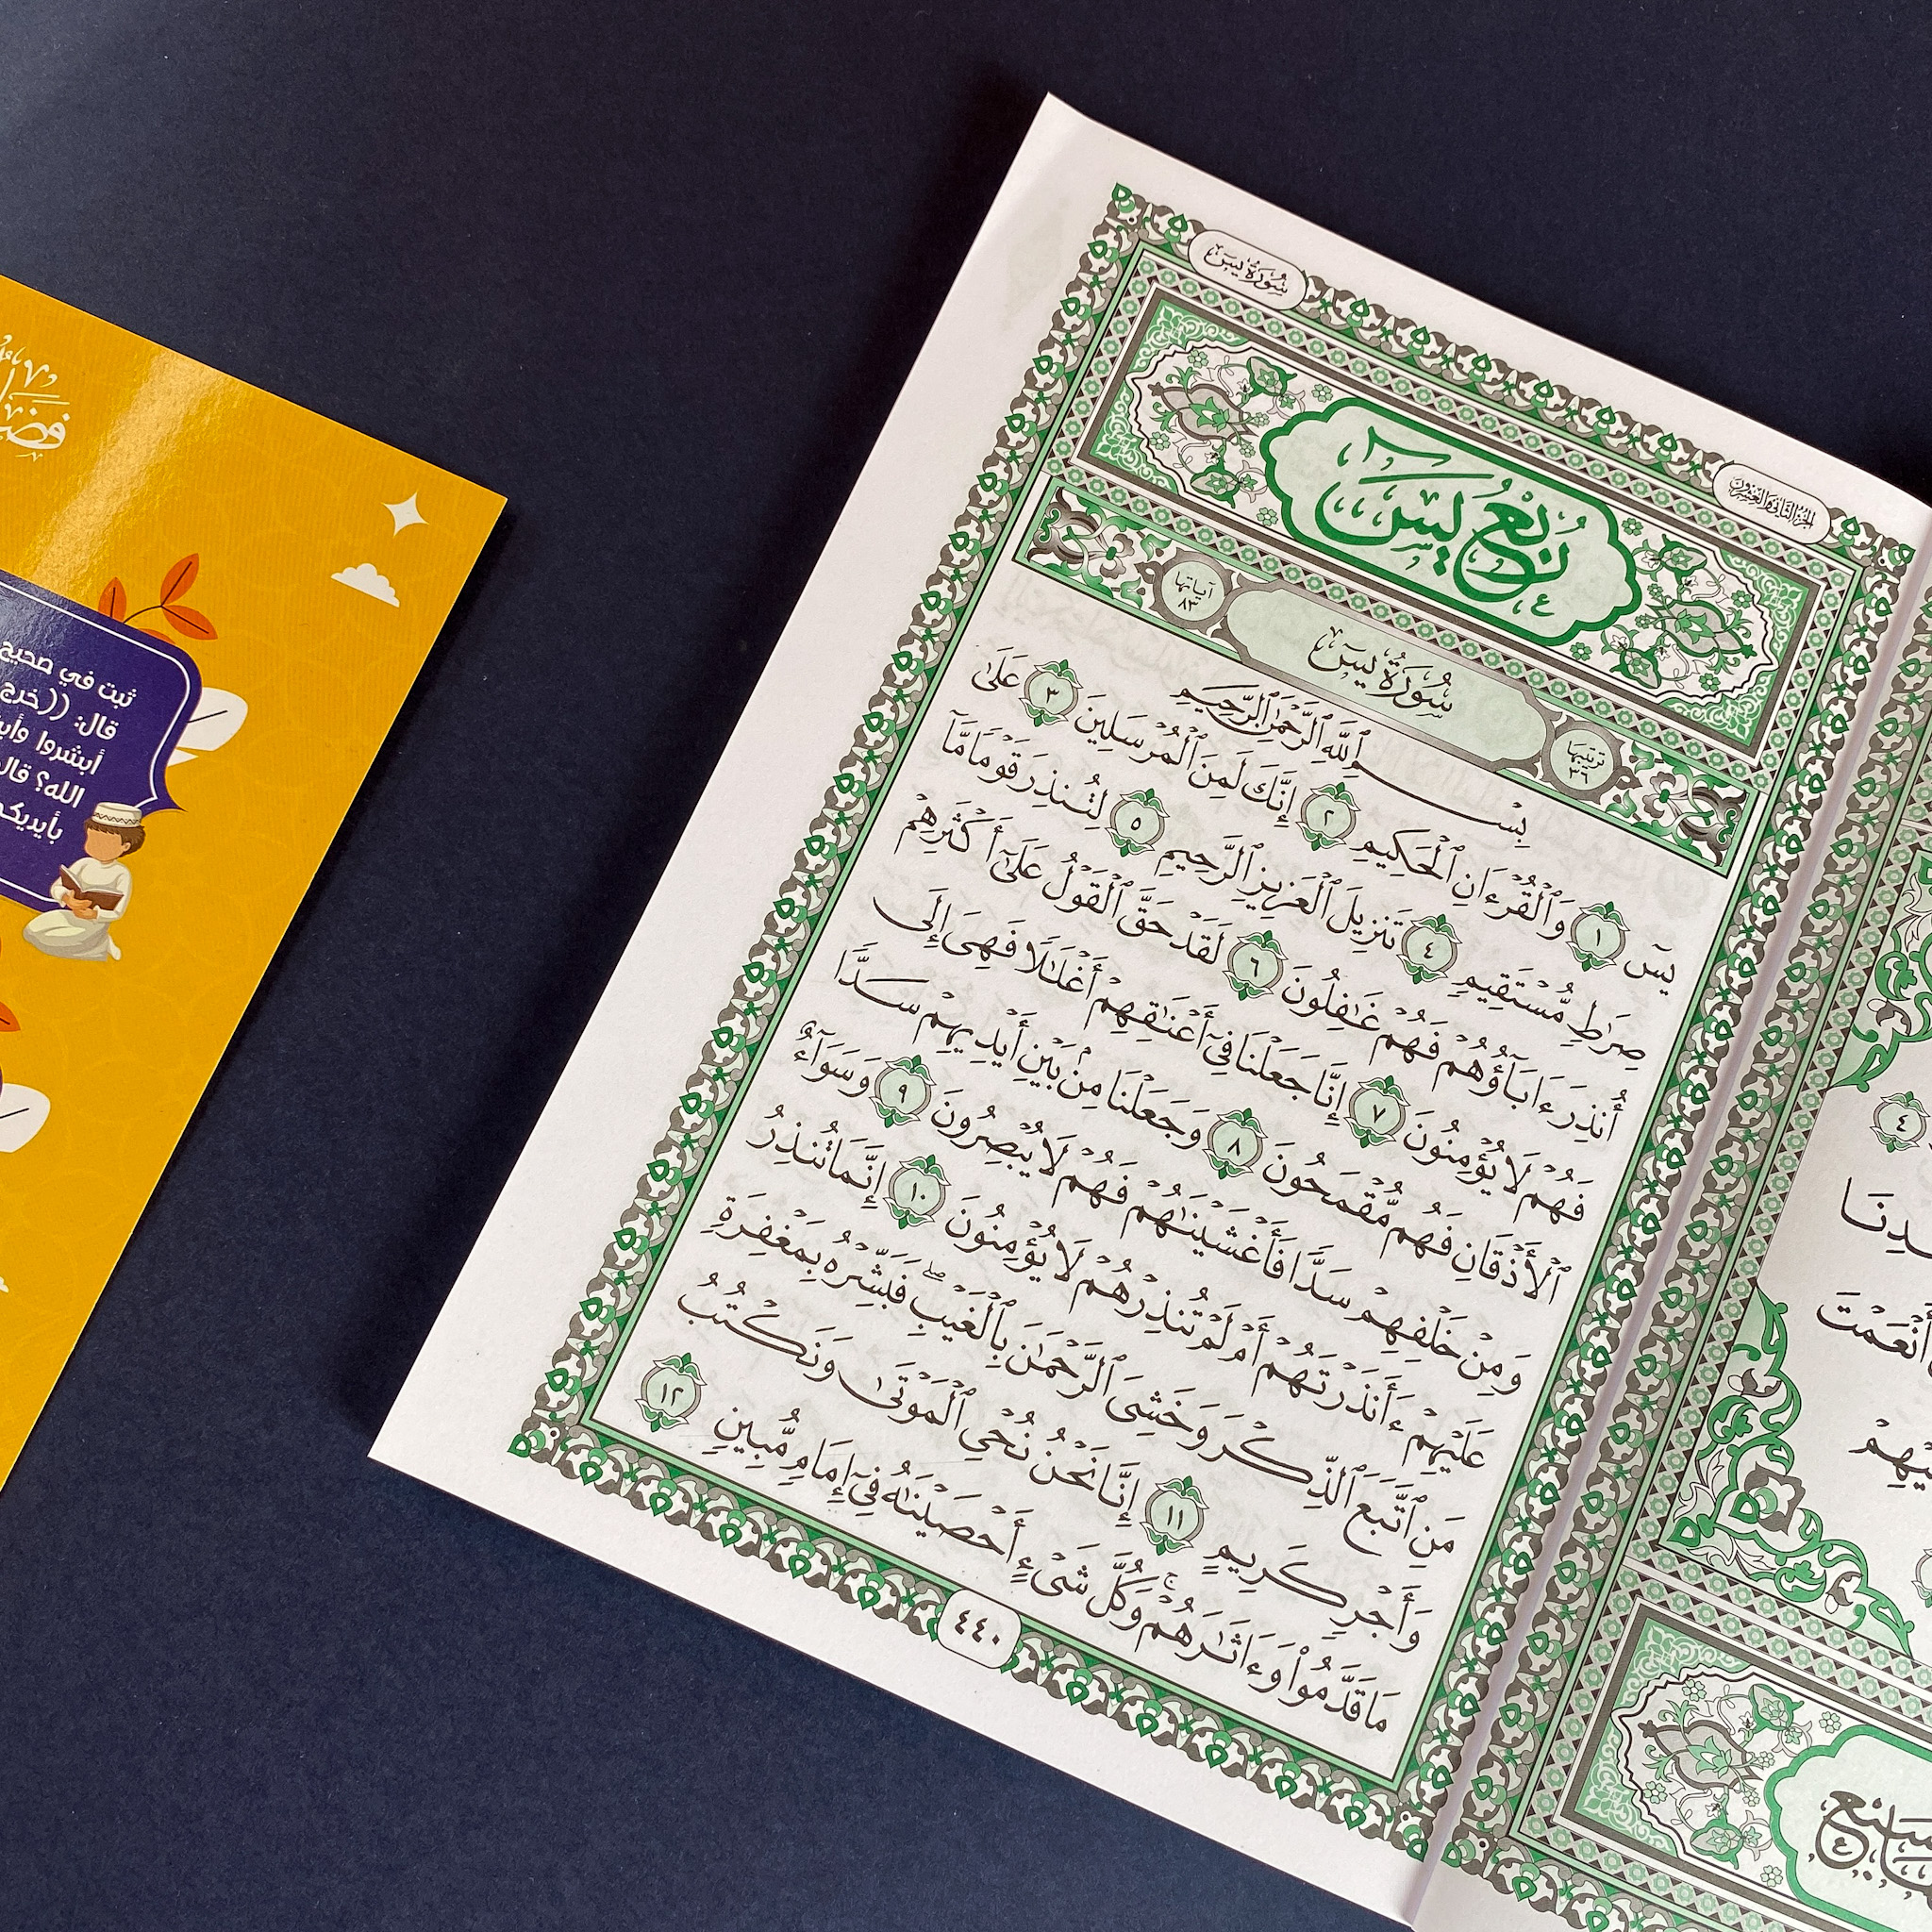 سُورَةُ يسٓ
الجزء الثاني والعشرون
رُبْعُ يسٓ
ترتيبها ٣٦
سُورَةُ يسٓ
آياتها ٨٣
بِسْمِ ٱللَّهِ ٱلرَّحْمَٰنِ ٱلرَّحِيمِ
يسٓ ١ وَٱلْقُرْءَانِ ٱلْحَكِيمِ ٢ إِنَّكَ لَمِنَ ٱلْمُرْسَلِينَ ٣ عَلَىٰ
صِرَٰطٍ مُّسْتَقِيمٍ ٤ تَنزِيلَ ٱلْعَزِيزِ ٱلرَّحِيمِ ٥ لِتُنذِرَ قَوْمًا مَّآ
أُنذِرَ ءَابَآؤُهُمْ فَهُمْ غَٰفِلُونَ ٦ لَقَدْ حَقَّ ٱلْقَوْلُ عَلَىٰٓ أَكْثَرِهِمْ
فَهُمْ لَا يُؤْمِنُونَ ٧ إِنَّا جَعَلْنَا فِىٓ أَعْنَٰقِهِمْ أَغْلَٰلًا فَهِىَ إِلَى
ٱلْأَذْقَانِ فَهُم مُّقْمَحُونَ ٨ وَجَعَلْنَا مِنۢ بَيْنِ أَيْدِيهِمْ سَدًّا
وَمِنْ خَلْفِهِمْ سَدًّا فَأَغْشَيْنَٰهُمْ فَهُمْ لَا يُبْصِرُونَ ٩ وَسَوَآءٌ
عَلَيْهِمْ ءَأَنذَرْتَهُمْ أَمْ لَمْ تُنذِرْهُمْ لَا يُؤْمِنُونَ ١٠ إِنَّمَا تُنذِرُ
مَنِ ٱتَّبَعَ ٱلذِّكْرَ وَخَشِىَ ٱلرَّحْمَٰنَ بِٱلْغَيْبِ ۖ فَبَشِّرْهُ بِمَغْفِرَةٍ
وَأَجْرٍ كَرِيمٍ ١١ إِنَّا نَحْنُ نُحْىِ ٱلْمَوْتَىٰ وَنَكْتُبُ
مَا قَدَّمُوا۟ وَءَاثَٰرَهُمْ ۚ وَكُلَّ شَىْءٍ أَحْصَيْنَٰهُ فِىٓ إِمَامٍ مُّبِينٍ ١٢
٤٤٠
٤
أَنْعَمْتَ
ثبت في صحيح
قال: ((خرج
أبشروا
الله؟